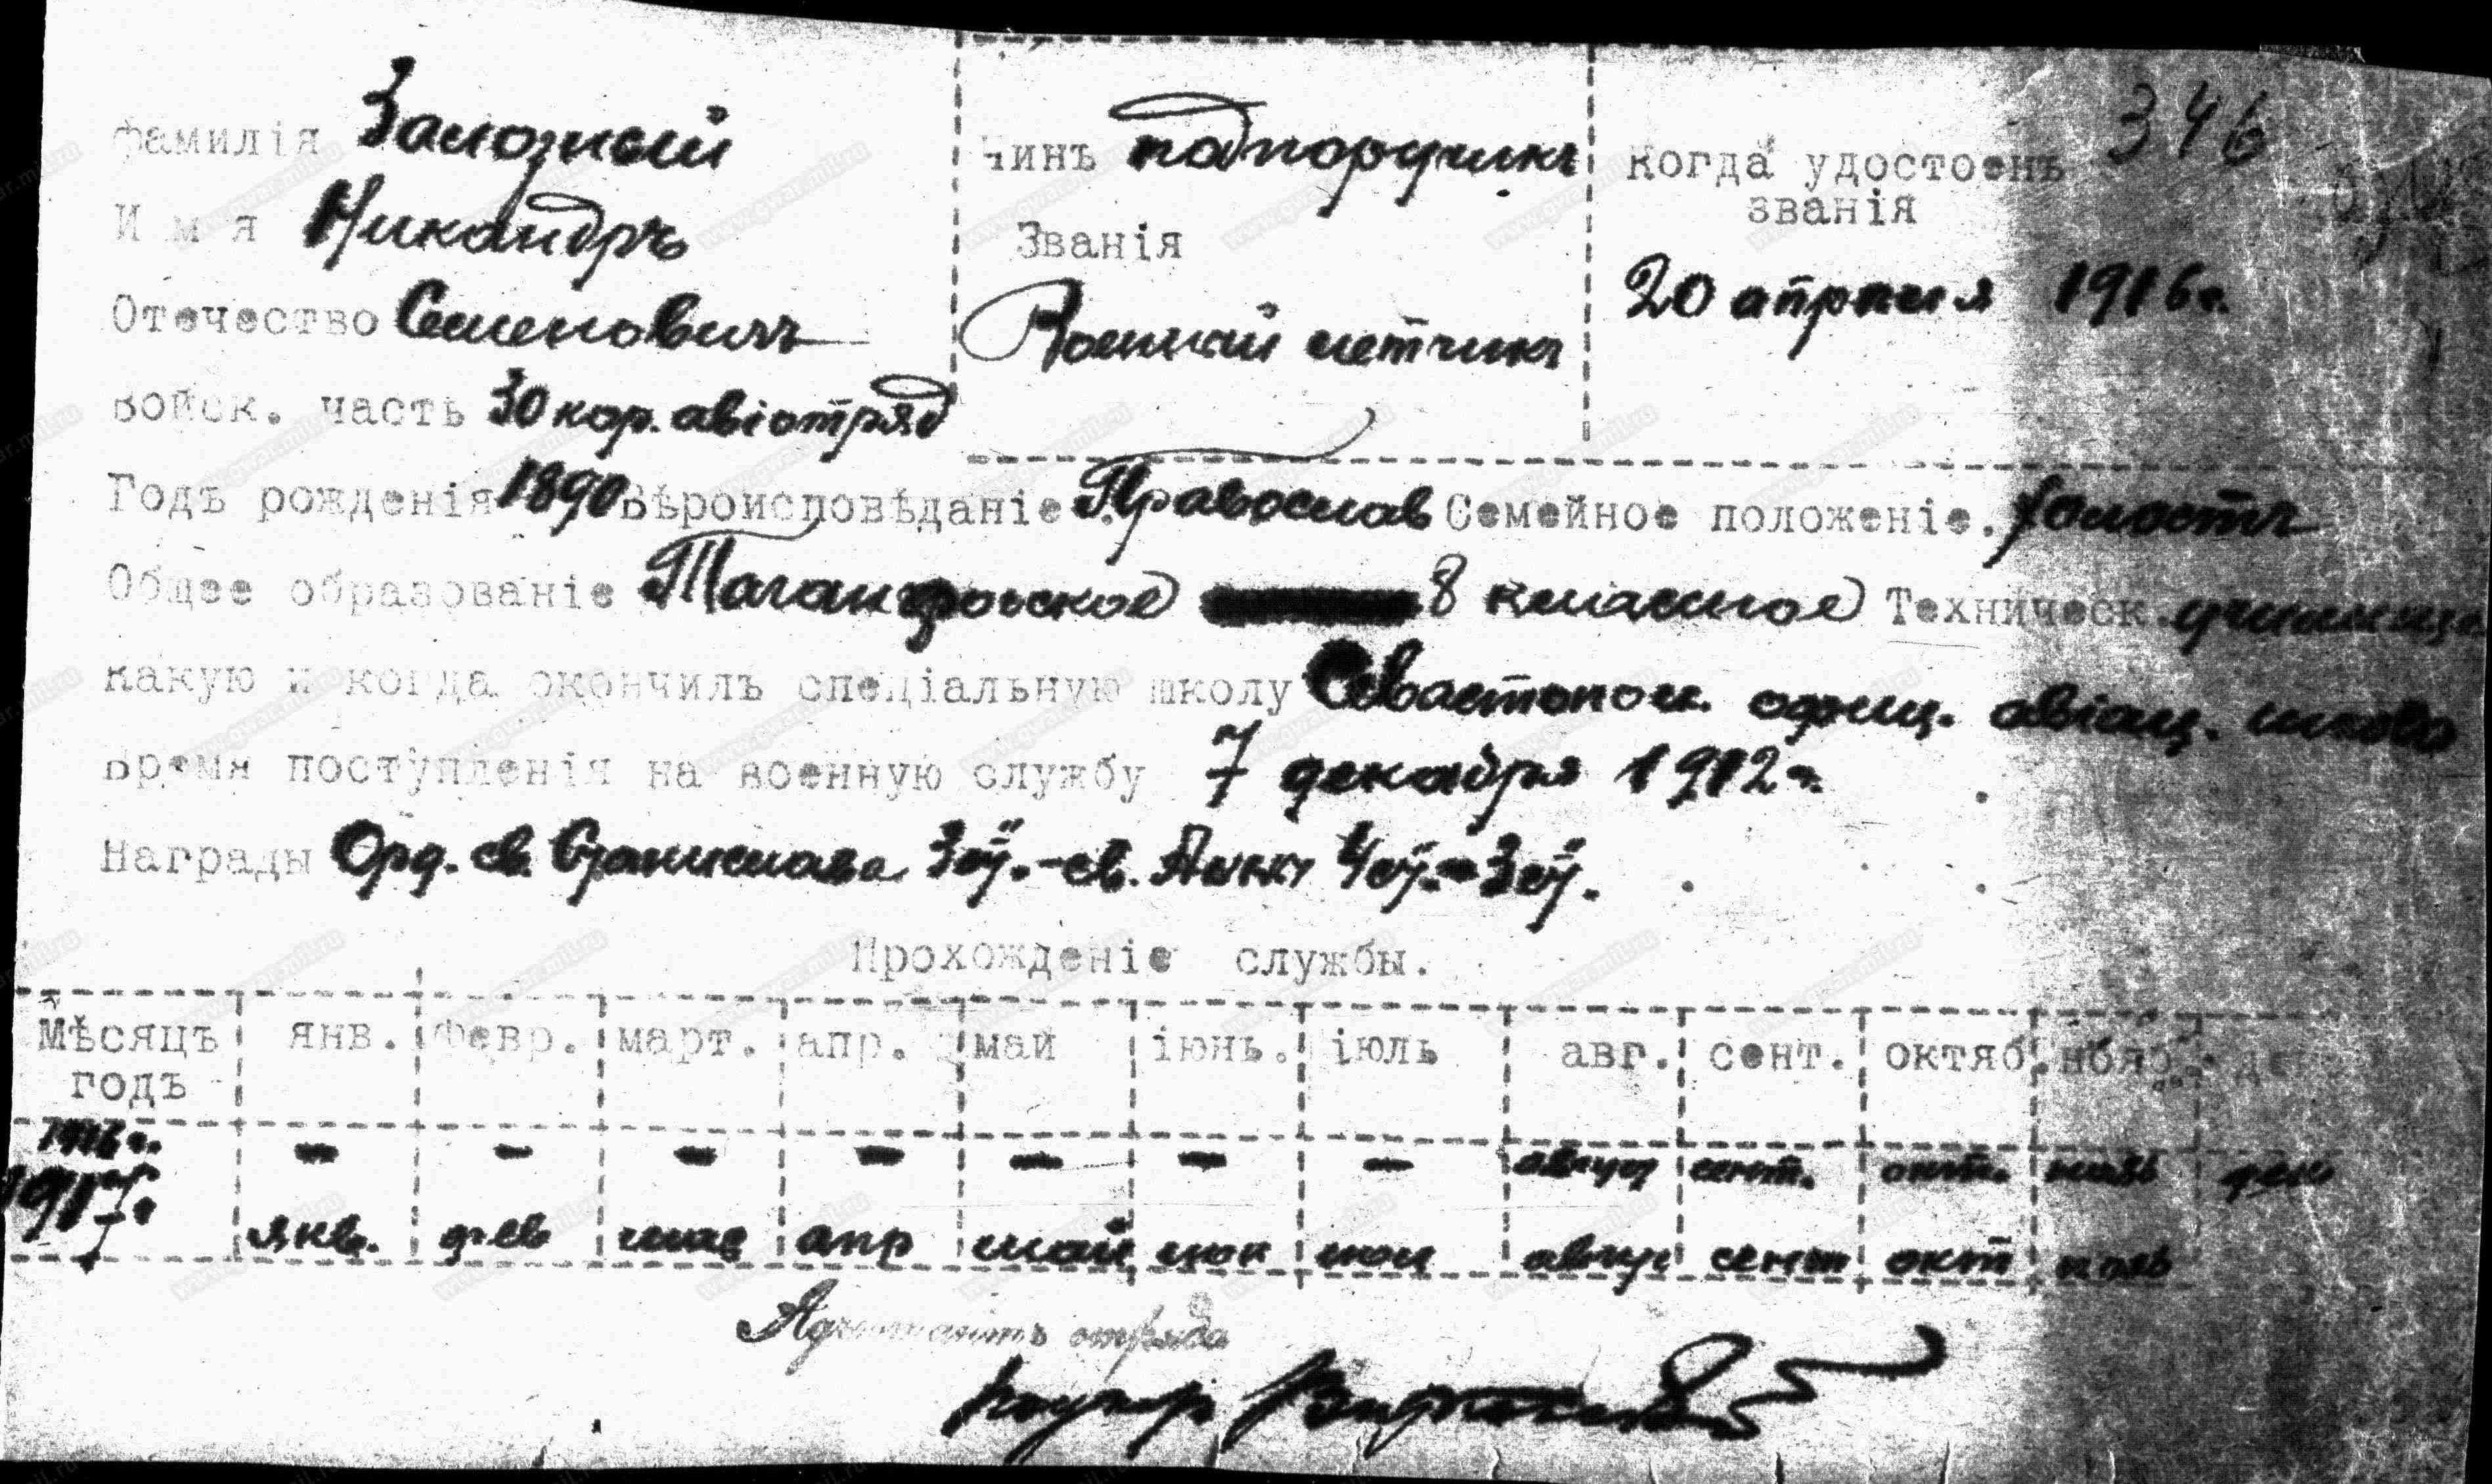 Фамилія Залозный
Имя Никандръ
Отечество Семеновичъ
Войск. часть 30 кор. авіотряд
Чинъ подпоручикъ
Званія
Военный летчикъ
Когда удостоенъ
званія
20 апреля 1916 г.
346
Годъ рожденія 1890 Вѣроисповѣданіе. Православ Семейное положеніе. Холостъ
Общее образованіе Таганрогское 8 классное Техническ. училище
Какую и когда окончилъ спеціальную школу Севастопол. офиц. авіац. школа
Время поступленія на военную службу 7 декабря 1912 г.
Награды Орд. св. Станислава 3 ст. - св. Анны 4 ст. - 3 ст.
Прохожденіе службы.
Мѣсяцъ янв. февр. март. апр. май іюнь. іюль авг. сент. октяб. нояб. де
годъ
1916 г. - - - - - - - август сент. окт. нояб дек
1917 г. янв. фев мар апр май июн июл август сент окт нояб
Адъютантъ отряда
www.gwar.mil.ru